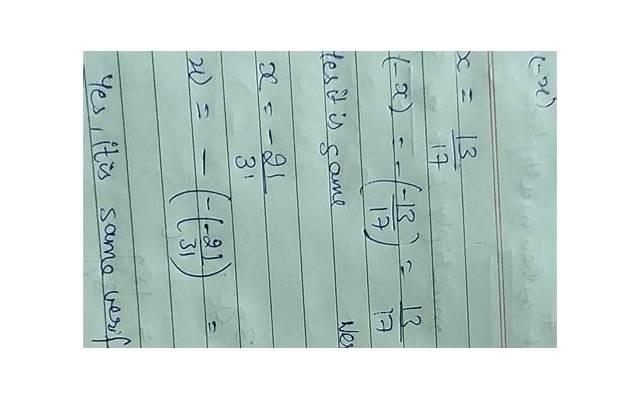 (-x)
x = 13/17
(-x) = -(-13/17) = 13/17
Yes it is same
x = -21/31
x) = -(-(-21/31)) =
Yes, it is same verif